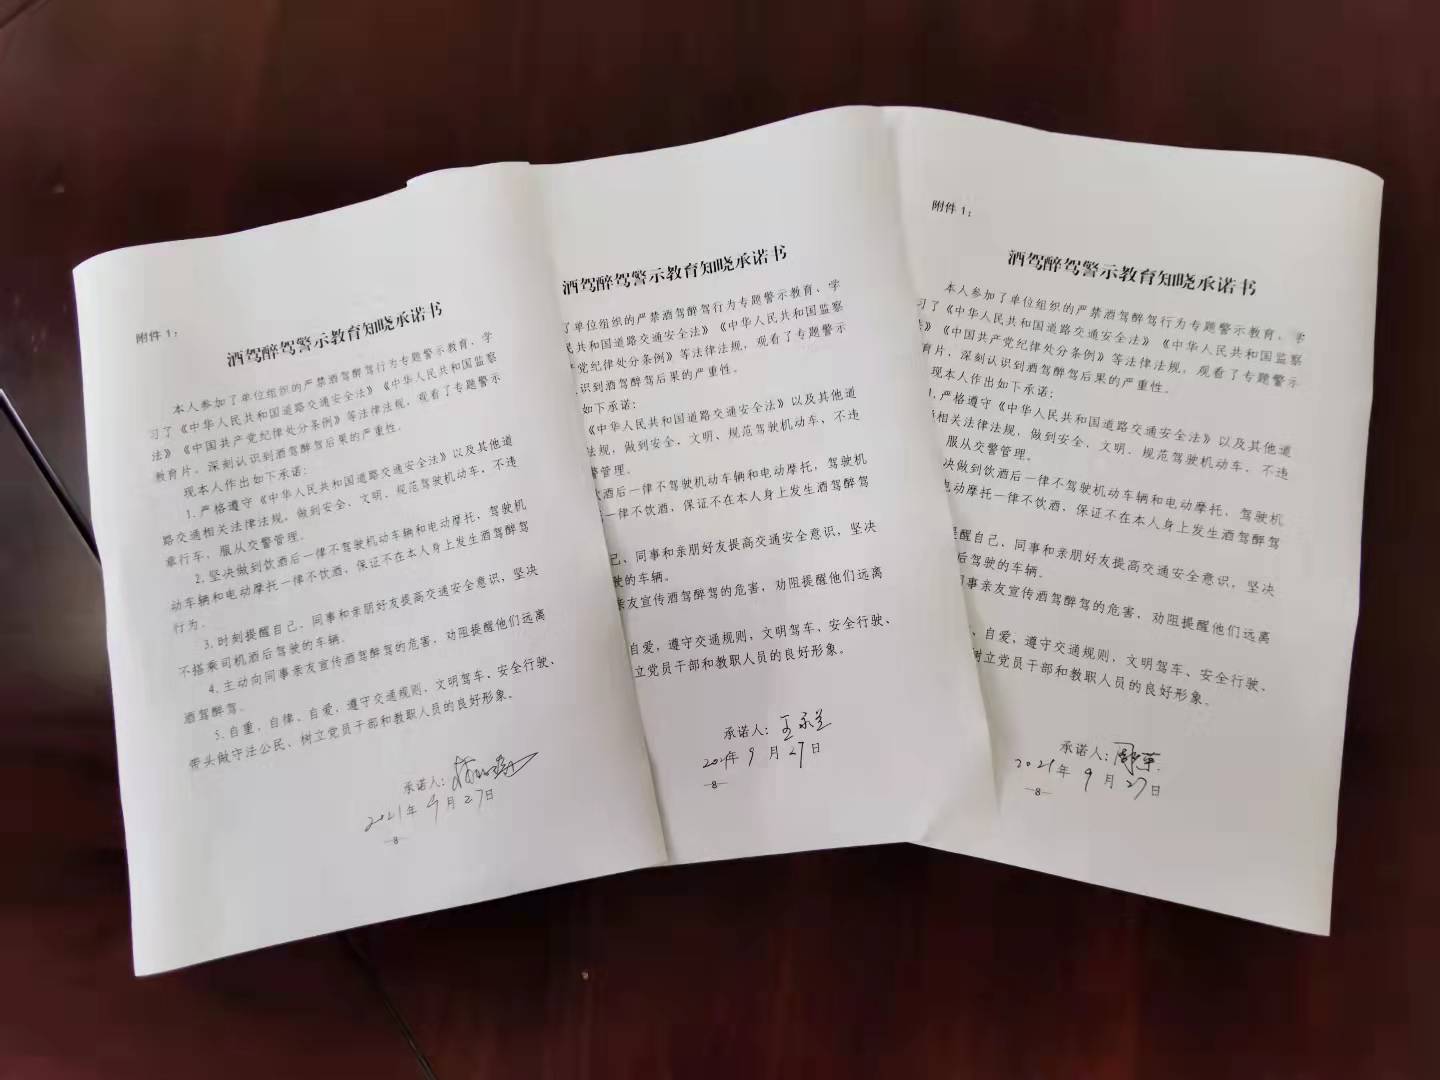 附件 1：
酒驾醉驾警示教育知晓承诺书
本人参加了单位组织的严禁酒驾醉驾行为专题警示教育、学
习了《中华人民共和国道路交通安全法》《中华人民共和国监察
法》《中国共产党纪律处分条例》等法律法规，观看了专题警示
教育片，深刻认识到酒驾醉驾后果的严重性。
现本人作出如下承诺：
1.严格遵守《中华人民共和国道路交通安全法》以及其他道
路交通相关法律法规，做到安全、文明、规范驾驶机动车，不违
章行车，服从交警管理。
2.坚决做到饮酒后一律不驾驶机动车辆和电动摩托，驾驶机
动车辆和电动摩托一律不饮酒，保证不在本人身上发生酒驾醉驾
行为。
3.时刻提醒自己、同事和亲朋好友提高交通安全意识，坚决
不搭乘司机酒后驾驶的车辆。
4.主动向同事亲友宣传酒驾醉驾的危害，劝阻提醒他们远离
酒驾醉驾。
5.自重、自律、自爱，遵守交通规则，文明驾车、安全行驶、
带头做守法公民、树立党员干部和教职人员的良好形象。
承诺人：
2021年 9 月 27日
—8—
酒驾醉驾警示教育知晓承诺书
了单位组织的严禁酒驾醉驾行为专题警示教育、学
民共和国道路交通安全法》《中华人民共和国监察
产党纪律处分条例》等法律法规，观看了专题警示
识到酒驾醉驾后果的严重性。
如下承诺：
《中华人民共和国道路交通安全法》以及其他道
法规，做到安全、文明、规范驾驶机动车，不违
警管理。
饮酒后一律不驾驶机动车辆和电动摩托，驾驶机
一律不饮酒，保证不在本人身上发生酒驾醉驾
己、同事和亲朋好友提高交通安全意识，坚决
驶的车辆。
亲友宣传酒驾醉驾的危害，劝阻提醒他们远离
自爱，遵守交通规则，文明驾车、安全行驶、
立党员干部和教职人员的良好形象。
承诺人：王永兰
2021年 9 月 27日
—8—
附件 1：
酒驾醉驾警示教育知晓承诺书
本人参加了单位组织的严禁酒驾醉驾行为专题警示教育、学
习了《中华人民共和国道路交通安全法》《中华人民共和国监察
》《中国共产党纪律处分条例》等法律法规，观看了专题警示
育片，深刻认识到酒驾醉驾后果的严重性。
现本人作出如下承诺：
1.严格遵守《中华人民共和国道路交通安全法》以及其他道
相关法律法规，做到安全、文明、规范驾驶机动车，不违
，服从交警管理。
决做到饮酒后一律不驾驶机动车辆和电动摩托，驾驶机
电动摩托一律不饮酒，保证不在本人身上发生酒驾醉驾
提醒自己、同事和亲朋好友提高交通安全意识，坚决
后驾驶的车辆。
同事亲友宣传酒驾醉驾的危害，劝阻提醒他们远离
、自爱，遵守交通规则，文明驾车、安全行驶、
树立党员干部和教职人员的良好形象。
承诺人：
2021 年 9 月 27日
—8—